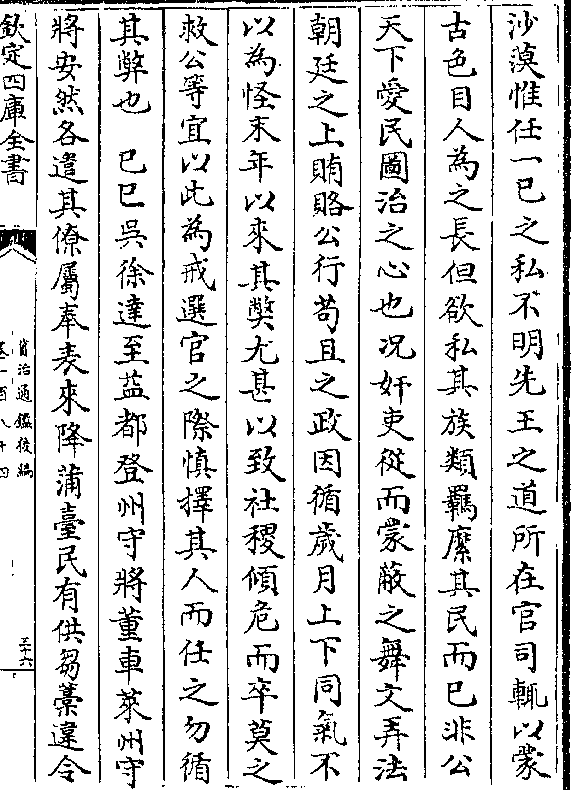 沙漠惟任一已之私不明先王之道所在官司輒以蒙
古色目人為之長但欲私其族類羈縻其民而已非公
天下愛民圖治之心也况奸吏從而蒙蔽之舞文弄法
朝廷之上賄賂公行苟且之政因循歲月上下同氣不
以為怪末年以來其獘尤甚以致社稷傾危而卒莫之
救公等宜以此為戒選官之際慎擇其人而任之勿循
其弊也　已巳吳徐達至益都登州守將董車萊州守
將安然各遣其僚屬奉表來降蒲臺民有供芻藁違令
欽定四庫全書
資治通鑑後編
卷一百八十四
三十六